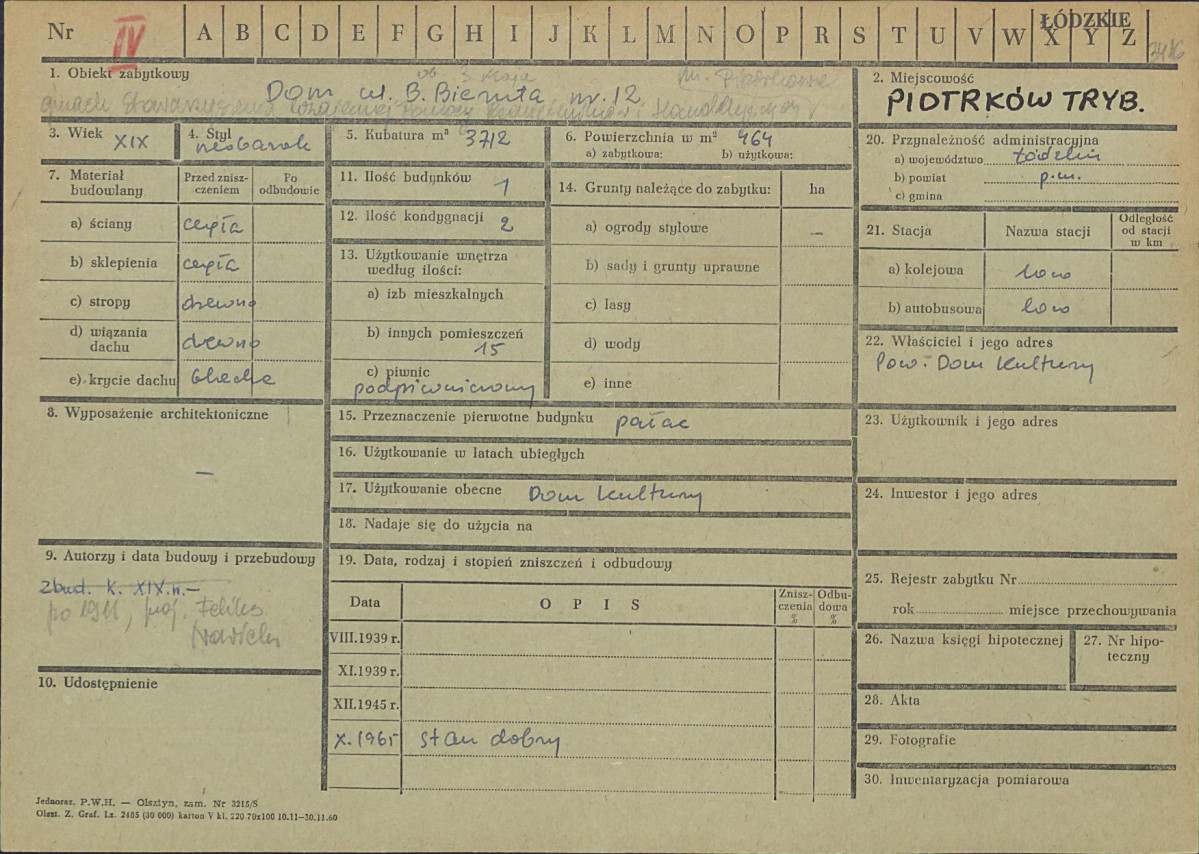 Nr IV A B C D E F G H I J K L M N O P R S T U V W X Y Z
ŁÓDZKIE
3416
1. Obiekt zabytkowy
ob. 3 Maja
Dom ul. B. Bieruta nr. 12
gmach Stowarzyszenia Wzajemnej Pomocy i Handlowych
2. Miejscowość
PIOTRKÓW TRYB.
3. Wiek XIX
4. Styl neobarok
5. Kubatura m³ 3712
6. Powierzchnia w m² 464
a) zabytkowa: b) użytkowa:
7. Materiał budowlany
Przed zniszczeniem
Po odbudowie
a) ściany cegła
b) sklepienia cegła
c) stropy drewno
d) wiązania dachu drewno
e) krycie dachu blacha
8. Wyposażenie architektoniczne
—
9. Autorzy i data budowy i przebudowy
Zbud. k. XIX w.—
po 1911, proj. Feliks
Nowicki
10. Udostępnienie
11. Ilość budynków 1
12. Ilość kondygnacji 2
13. Użytkowanie wnętrza
według ilości:
a) izb mieszkalnych
b) innych pomieszczeń
15
c) piwnic
podpiwniczony
14. Grunty należące do zabytku: ha
a) ogrody stylowe —
b) sady i grunty uprawne
c) lasy
d) wody
e) inne
15. Przeznaczenie pierwotne budynku pałac
16. Użytkowanie w latach ubiegłych
17. Użytkowanie obecne Dom Kultury
18. Nadaje się do użycia na
19. Data, rodzaj i stopień zniszczeń i odbudowy
Data OPIS Zniszczenia % Odbudowa %
VIII.1939 r.
XI.1939 r.
XII.1945 r.
X.1965 stan dobry
20. Przynależność administracyjna
a) województwo łódzkie
b) powiat p.m.
c) gmina
21. Stacja Nazwa stacji Odległość od stacji w km
a) kolejowa loco
b) autobusowa loco
22. Właściciel i jego adres
Pow. Dom Kultury
23. Użytkownik i jego adres
24. Inwestor i jego adres
25. Rejestr zabytku Nr
rok miejsce przechowywania
26. Nazwa księgi hipotecznej
27. Nr hipoteczny
28. Akta
29. Fotografie
30. Inwentaryzacja pomiarowa
Jednoraz. P.W.H. — Olsztyn, zam. Nr 3215/S
Olszt. Z. Graf. Lz. 2485 (30 000) karton V kl. 220 70x100 10.11—30.11.60